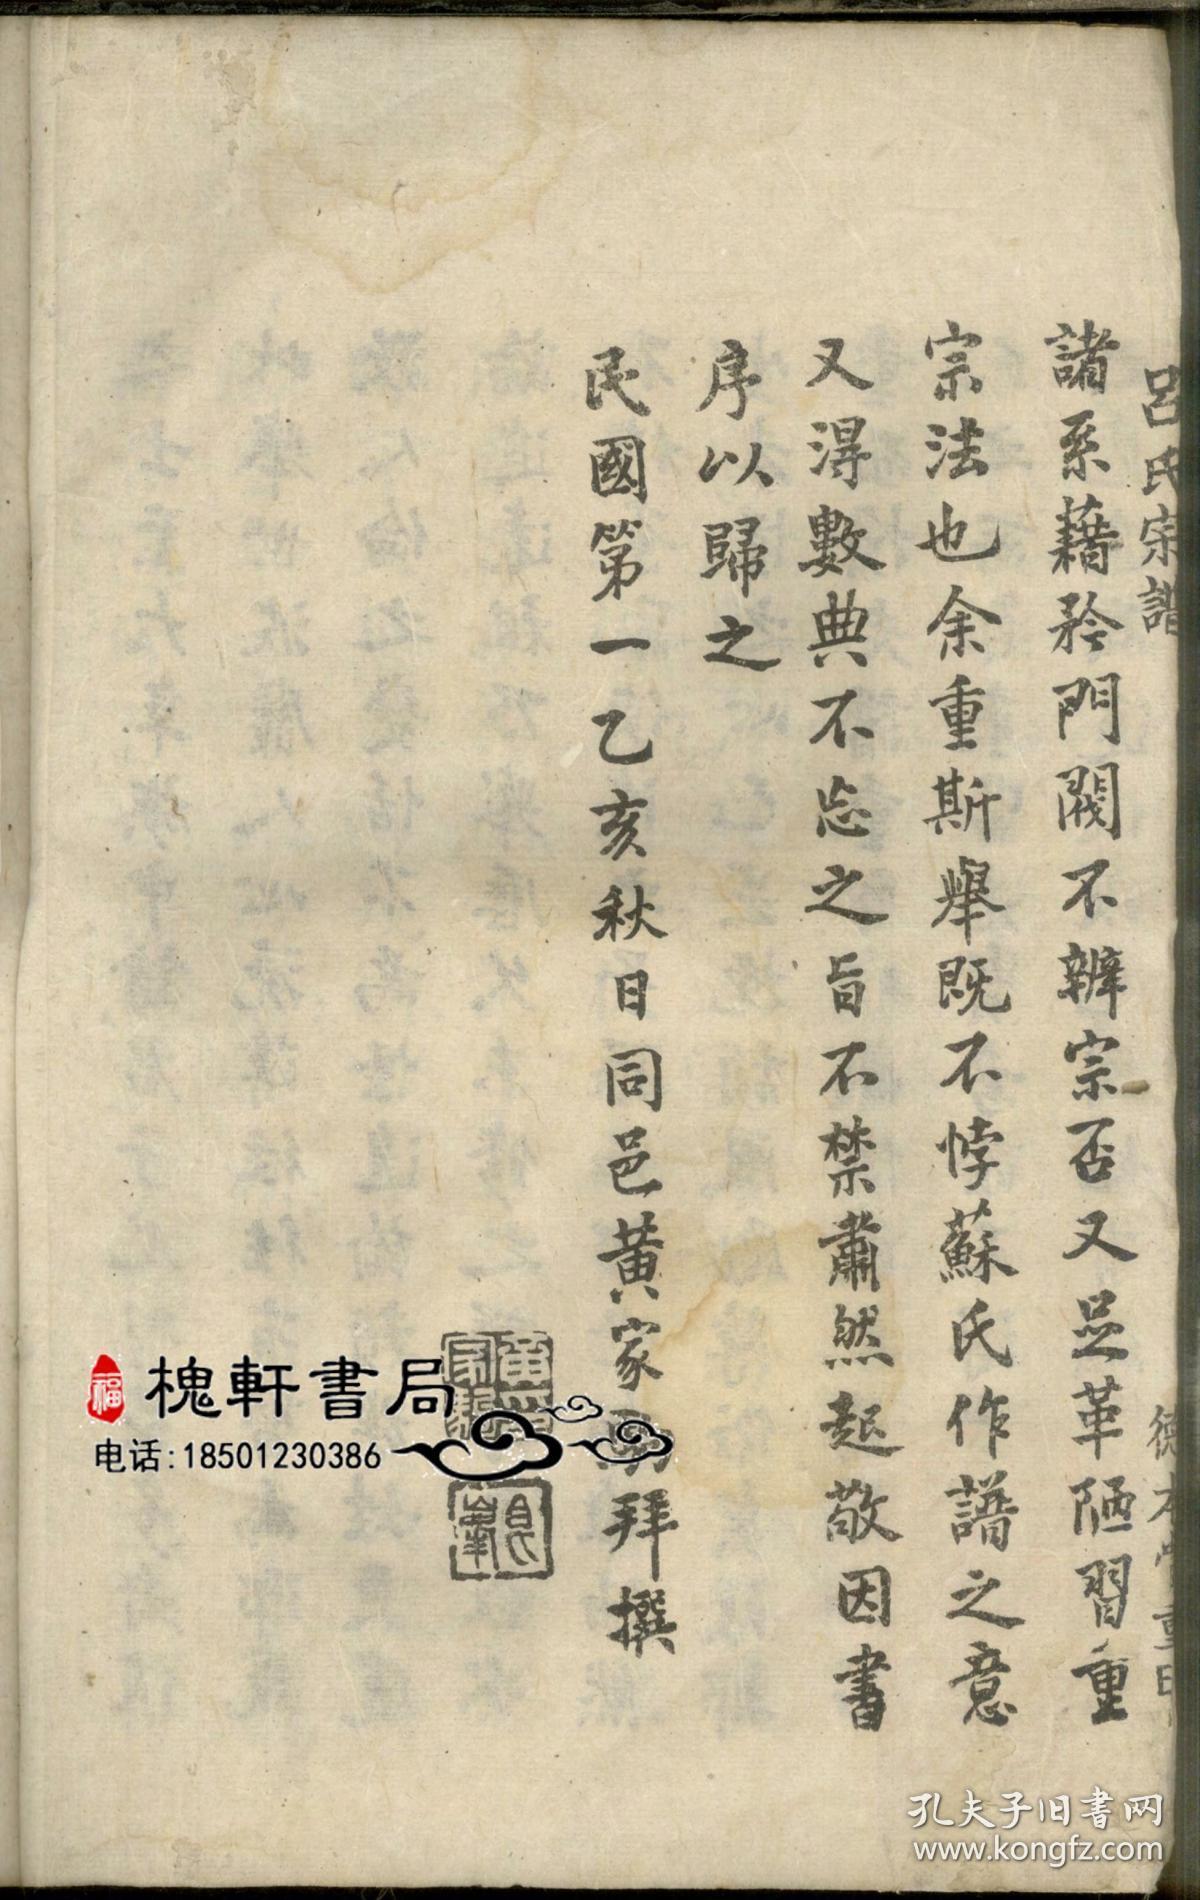 呂氏宗譜
德本堂重印
諸系藉矜門閥不辨宗否又足革陋習重
宗法也余重斯舉既不悖蘇氏作譜之意
又得數典不忘之旨不禁肅然起敬因書
序以歸之
民國第一乙亥秋日同邑黃家 拜撰
槐軒書局
福
电话:18501230386
孔夫子旧书网
www.kongfz.com